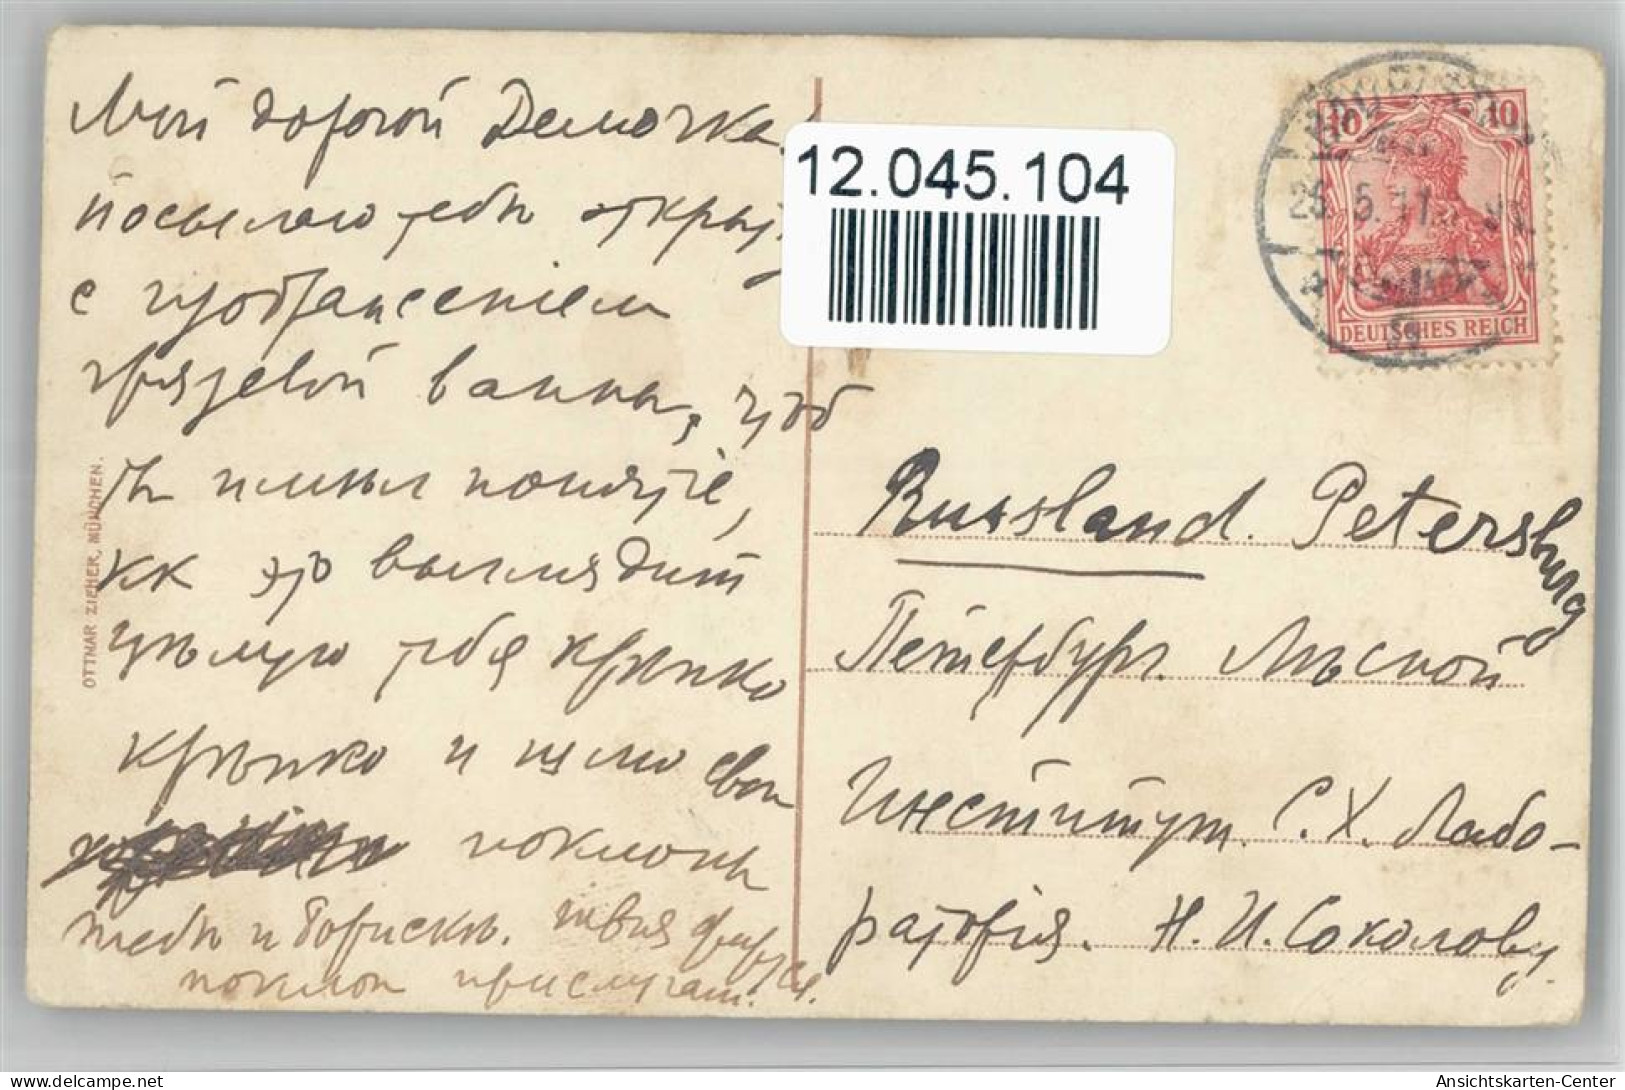 Мой дорогой Демочка!
посылаю тебѣ открыт
с изображеніем
грязевой ванны, чтоб
ты имѣл понятіе,
кк это выглядит
цѣлую тебя крѣпко
крѣпко и шлю свои
поклоны
тебѣ и Борискѣ. твоя
поклон прислугам.
12.045.104
10 10
25.5.11.
DEUTSCHES REICH
Russland. Petersburg
Петербург. Лѣсной
Институт. С. Х. Лабо-
раторія. Н. И. Соколову.
OTTMAR ZIEHER, MÜNCHEN.
Ansichtskarten-Center